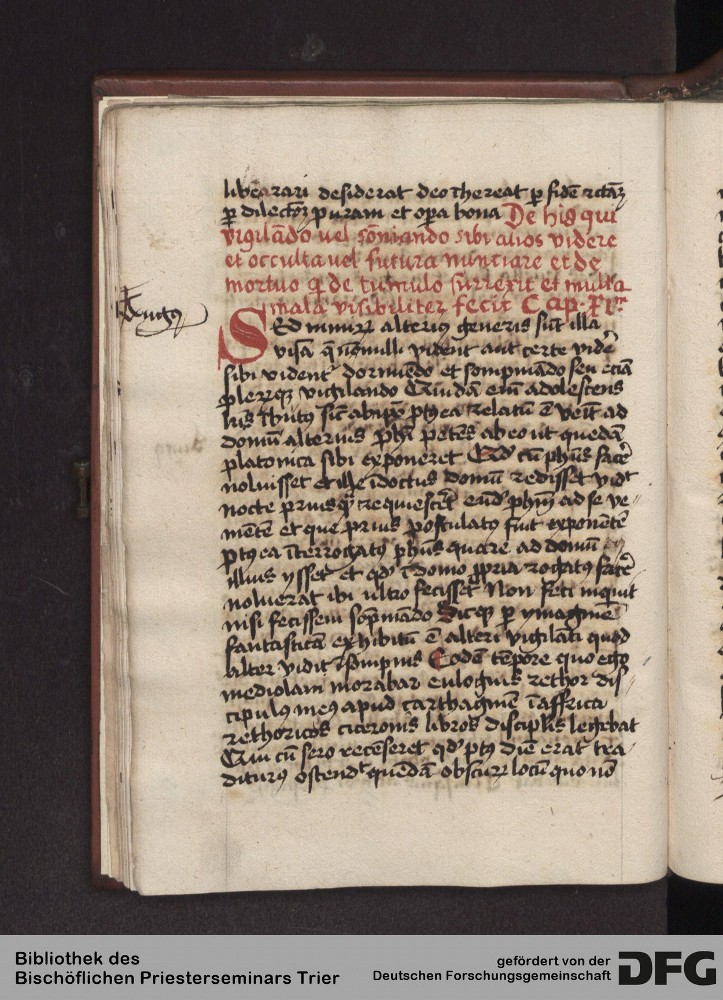 liberari desiderat deo thereat p fidē rctāʒ
p dilectōʒ puram et opa bona De his qui
vigilādo vel sōniando sibi alios videre
et occulta vel futura nunciare et de
mortuo q̄ de tumulo surrexit et multa
mala visibiliter fecit Cap. XIm
Augꝰ
SEd minirꝝ alterius generis sūt illa
visa q̄ nōnulli vident aut certe vidēt
sibi vident dormiendo et sompniando seu eciā
plerūqꝫ vigilando Cuidam em adolescens
domū alterius phi petēs ab eo ut quedā
platonica sibi exponeret Qd cū phūs facē
noluisset et ille idoctus domū redisset vidt
nocte priusq̄ requiescēt eūd phm ad se ve-
nientē et que prius postulatꝰ fuit exponētē
ptꝫ ea īterrogatꝰ phūs quare ad domū
illius ysset et qd ī domo ppria rogatꝰ facē
noluerat ibi ultro fecisset Non feci inquit
nisi fecissem sopniando Sicqꝫ p ymaginē
fantasticā exhibitū ē alteri vigilāti quod
alter vidit ī sompnis Eodē tēpore quo ego
mediolani morabar eulogius rethor dis-
cipulꝰ meꝰ apud carthaginē ī affrica
rethoricos ciceronis libros disciplis legebat
Qui cū sero recēseret qd ptꝫ diē erat tra-
diturꝰ ostendt quendā obscurꝝ locū quo nō
Bibliothek des
Bischöflichen Priesterseminars Trier
gefördert von der
Deutschen Forschungsgemeinschaft
DFG